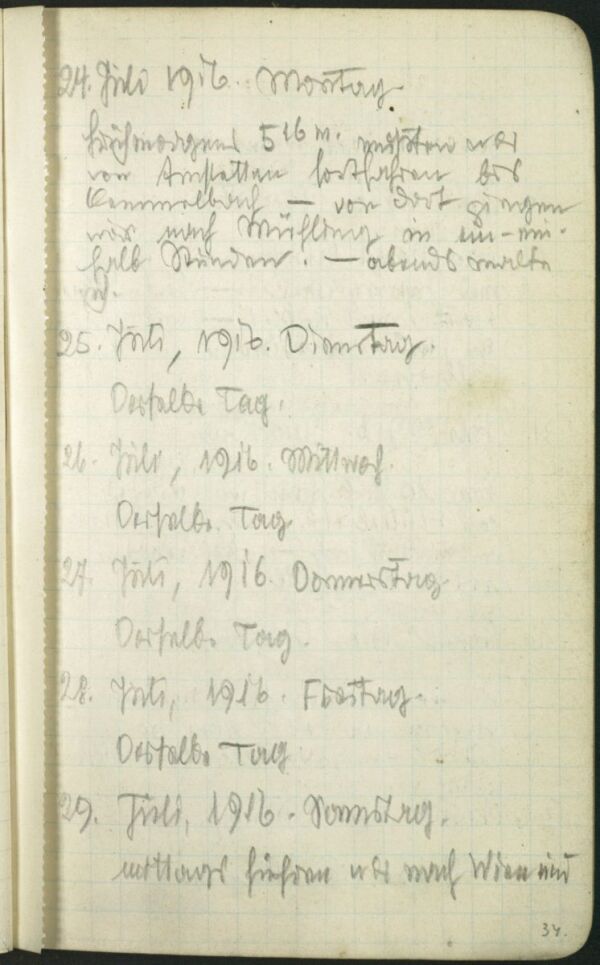 24. Juli 1916. Montag.
frühmorgens 5 16 m. mußten wir
von Amstetten fortfahren bis
Kemmelbach — von dort gingen
wir nach Mühling in ein-ein-
halb Stunden. — abends malte
ich.
25. Juli, 1916. Dienstag.
Derselbe Tag.
26. Juli, 1916. Mittwoch.
Derselbe Tag
27. Juli, 1916. Donnerstag.
Derselbe Tag.
28. Juli, 1916. Freitag.
Derselbe Tag
29. Juli, 1916. Samstag.
mittags fuhren wir nach Wien und
34.